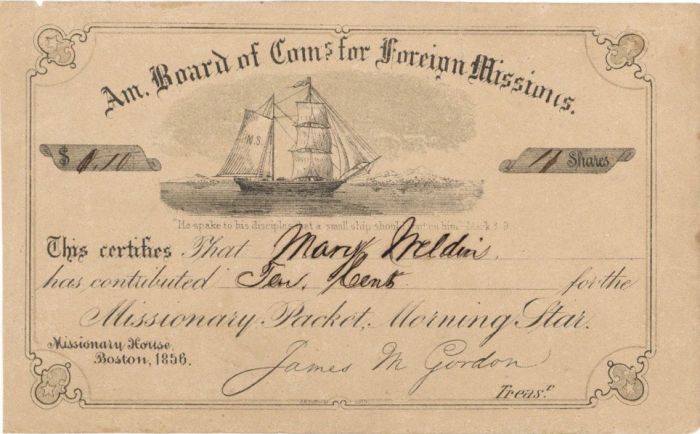 Am. Board of Coms for Foreign Missions.
M.S.
$ 0.10
11 Shares
"He spake to his disciples that a small ship should wait on him" Mark 3.9
This certifies That Mary Weldin
has contributed Ten Cents for the
Missionary Packet, Morning Star.
Missionary House,
Boston, 1856.
James M Gordon
Treasr.